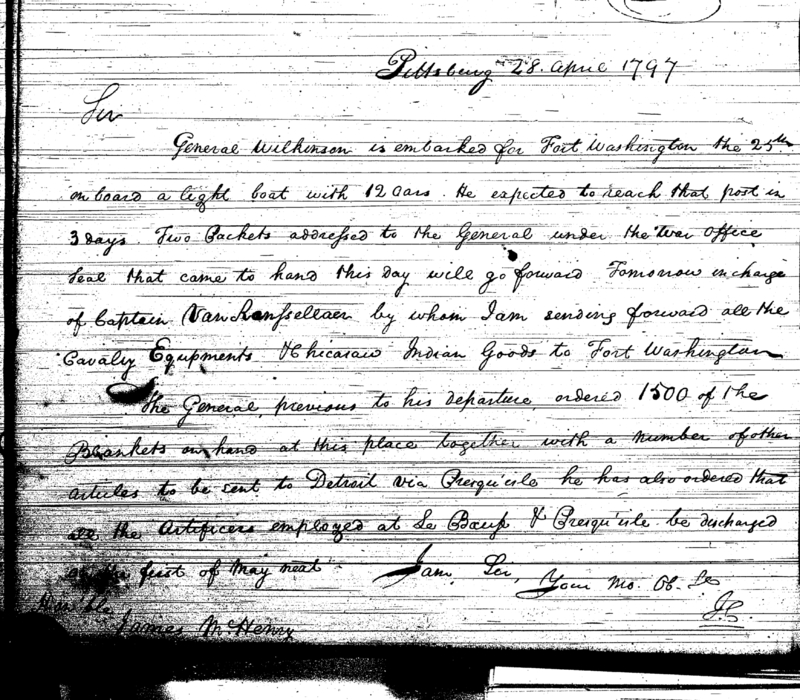 Pittsburg 28. April 1797
Sir
General Wilkinson is embarked for Fort Washington the 25th
on board a light boat with 12 oars. He expected to reach that post in
3 days. Two Packets addressed to the General under the War Office
Seal that came to hand this day will go forward Tomorrow in charge
of Captain Van Ranssellaer by whom I am sending forward all the
Cavalry Equipments & Chicasaw Indian Goods to Fort Washington
The General, previous to his departure, ordered 1500 of the
Blankets on hand at this place together with a number of other
articles to be sent to Detroit via Presqu'isle he has also ordered that
all the Artificers employed at Le Bœuf & Presqu'isle be discharged
the first of May next I am, Sir, Your Mo. Ob. Se
J.S.
James McHenry